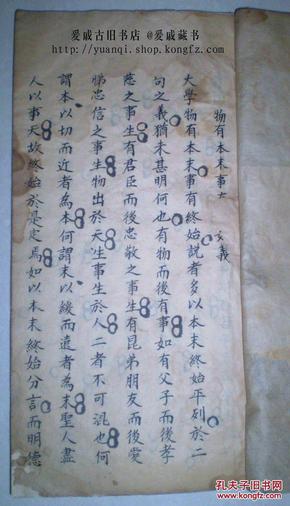 爱戚古旧书店@爱戚藏书
http://yuanqi.shop.kongfz.com/
物有本末事 文義
大學物有本末事有終始說者多以本末終始平列於二
句之義猶未甚明何也有物而後有事如有父子而後孝
慈之事生有君臣而後忠敬之事生有昆弟朋友而後愛
悌忠信之事生物出於天生事生於人二者不可混也何
謂本以切而近者為本何謂末以緩而遠者為末聖人盡
人以事天故終始於是定焉如以本末終始分言而明德
孔夫子旧书网